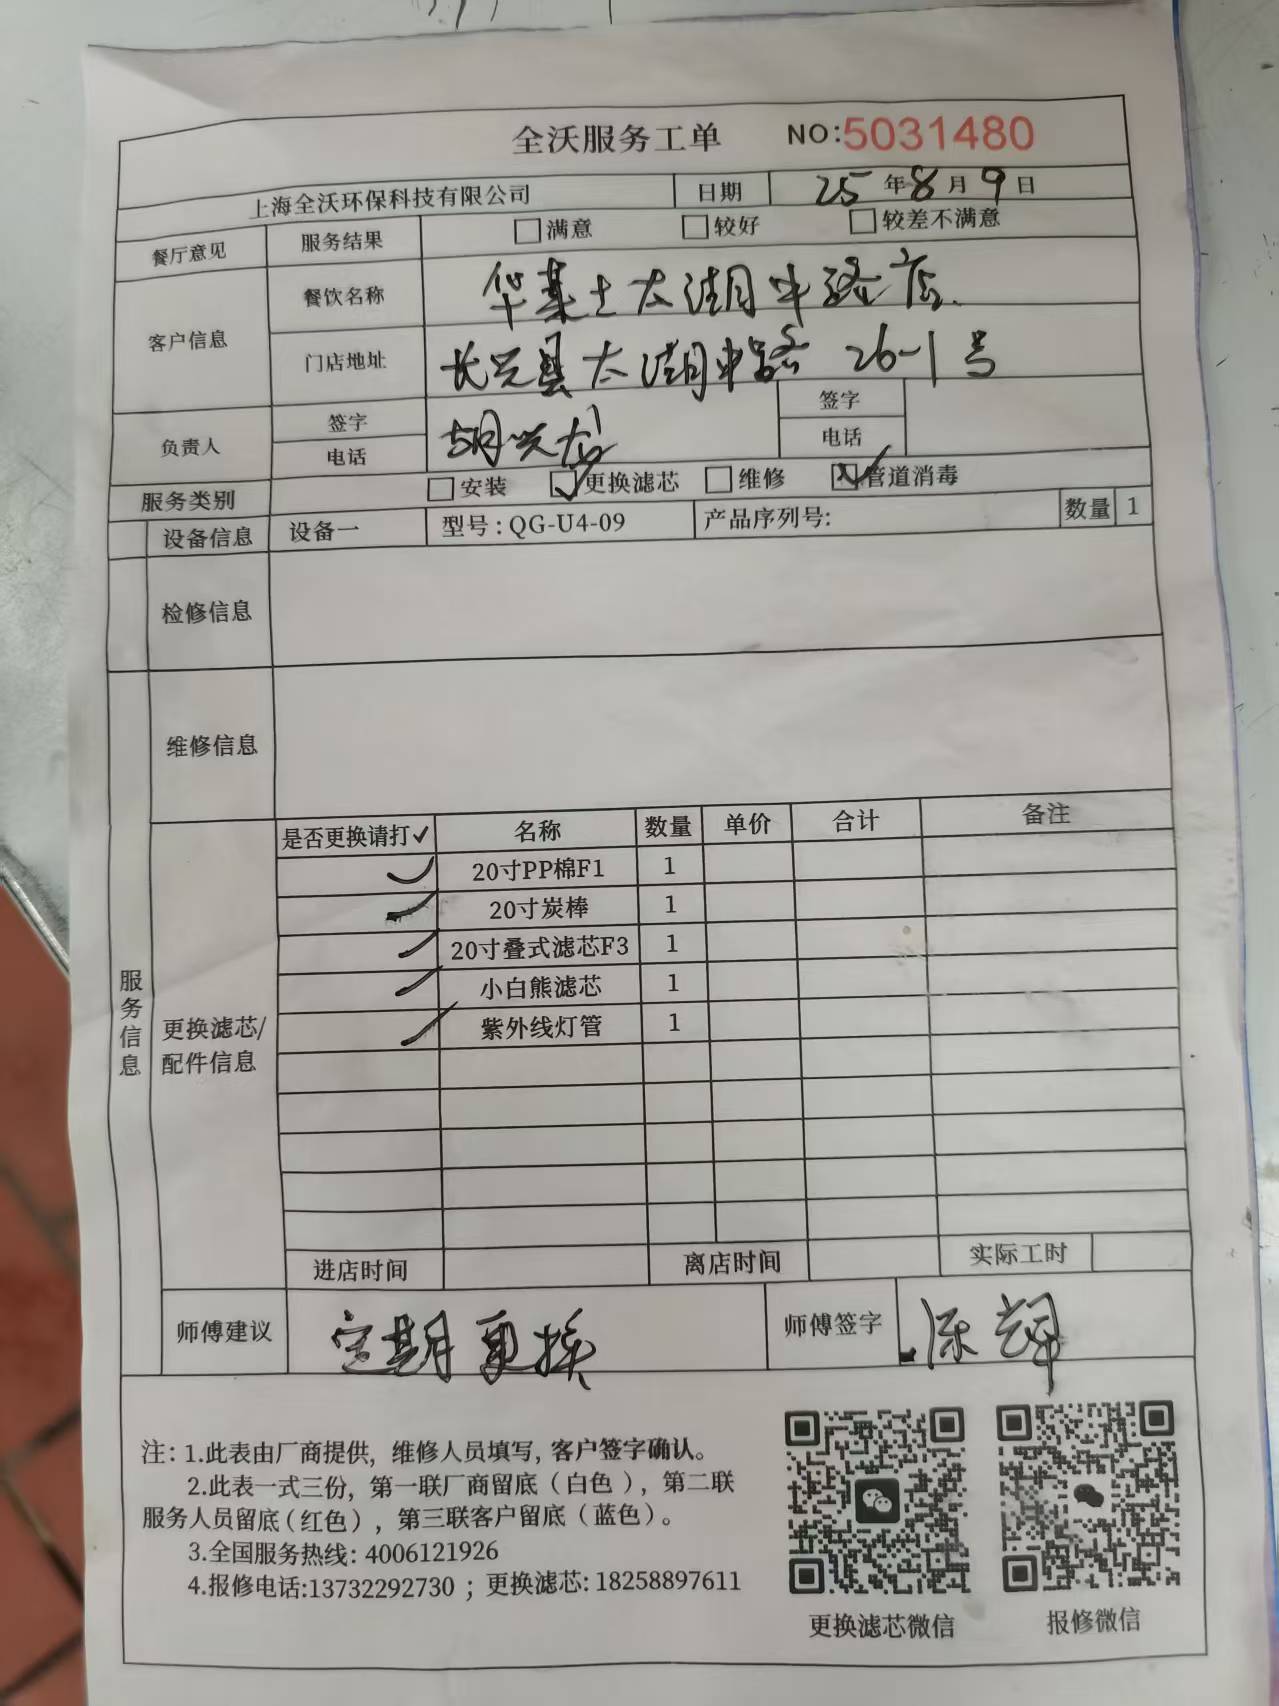 全沃服务工单 NO:5031480
上海全沃环保科技有限公司 日期 25年8月9日
餐厅意见 服务结果 □满意 □较好 □较差不满意
客户信息 餐饮名称 华莱士太湖中路店
门店地址 长兴县太湖中路 26-1号
负责人 签字 胡兴龙 签字
电话 电话
服务类别 □安装 ☑更换滤芯 □维修 ☑管道消毒
设备信息 设备一 型号:QG-U4-09 产品序列号: 数量 1
检修信息
维修信息
服务信息
更换滤芯/配件信息
是否更换请打✓ 名称 数量 单价 合计 备注
✓ 20寸PP棉F1 1
✓ 20寸炭棒 1
✓ 20寸叠式滤芯F3 1
✓ 小白熊滤芯 1
✓ 紫外线灯管 1
进店时间 离店时间 实际工时
师傅建议 定期更换 师傅签字 陈辉
注:1.此表由厂商提供,维修人员填写,客户签字确认。
2.此表一式三份,第一联厂商留底(白色),第二联
服务人员留底(红色),第三联客户留底(蓝色)。
3.全国服务热线:4006121926
4.报修电话:13732292730;更换滤芯:18258897611
更换滤芯微信 报修微信